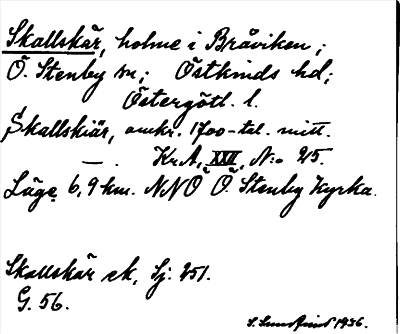 Skallskär, holme i Bråviken;
Ö. Stenby sn; Östkinds hd;
Östergötl. l.
Skallskiär, omkr. 1700-tal. mitt.
—. Kr.A, XXV, N:o 25.
Läge 6,9 km. NNO Ö. Stenby kyrka.
Skallskär ek, Sj: 251.
G. 56.
S. 1936.